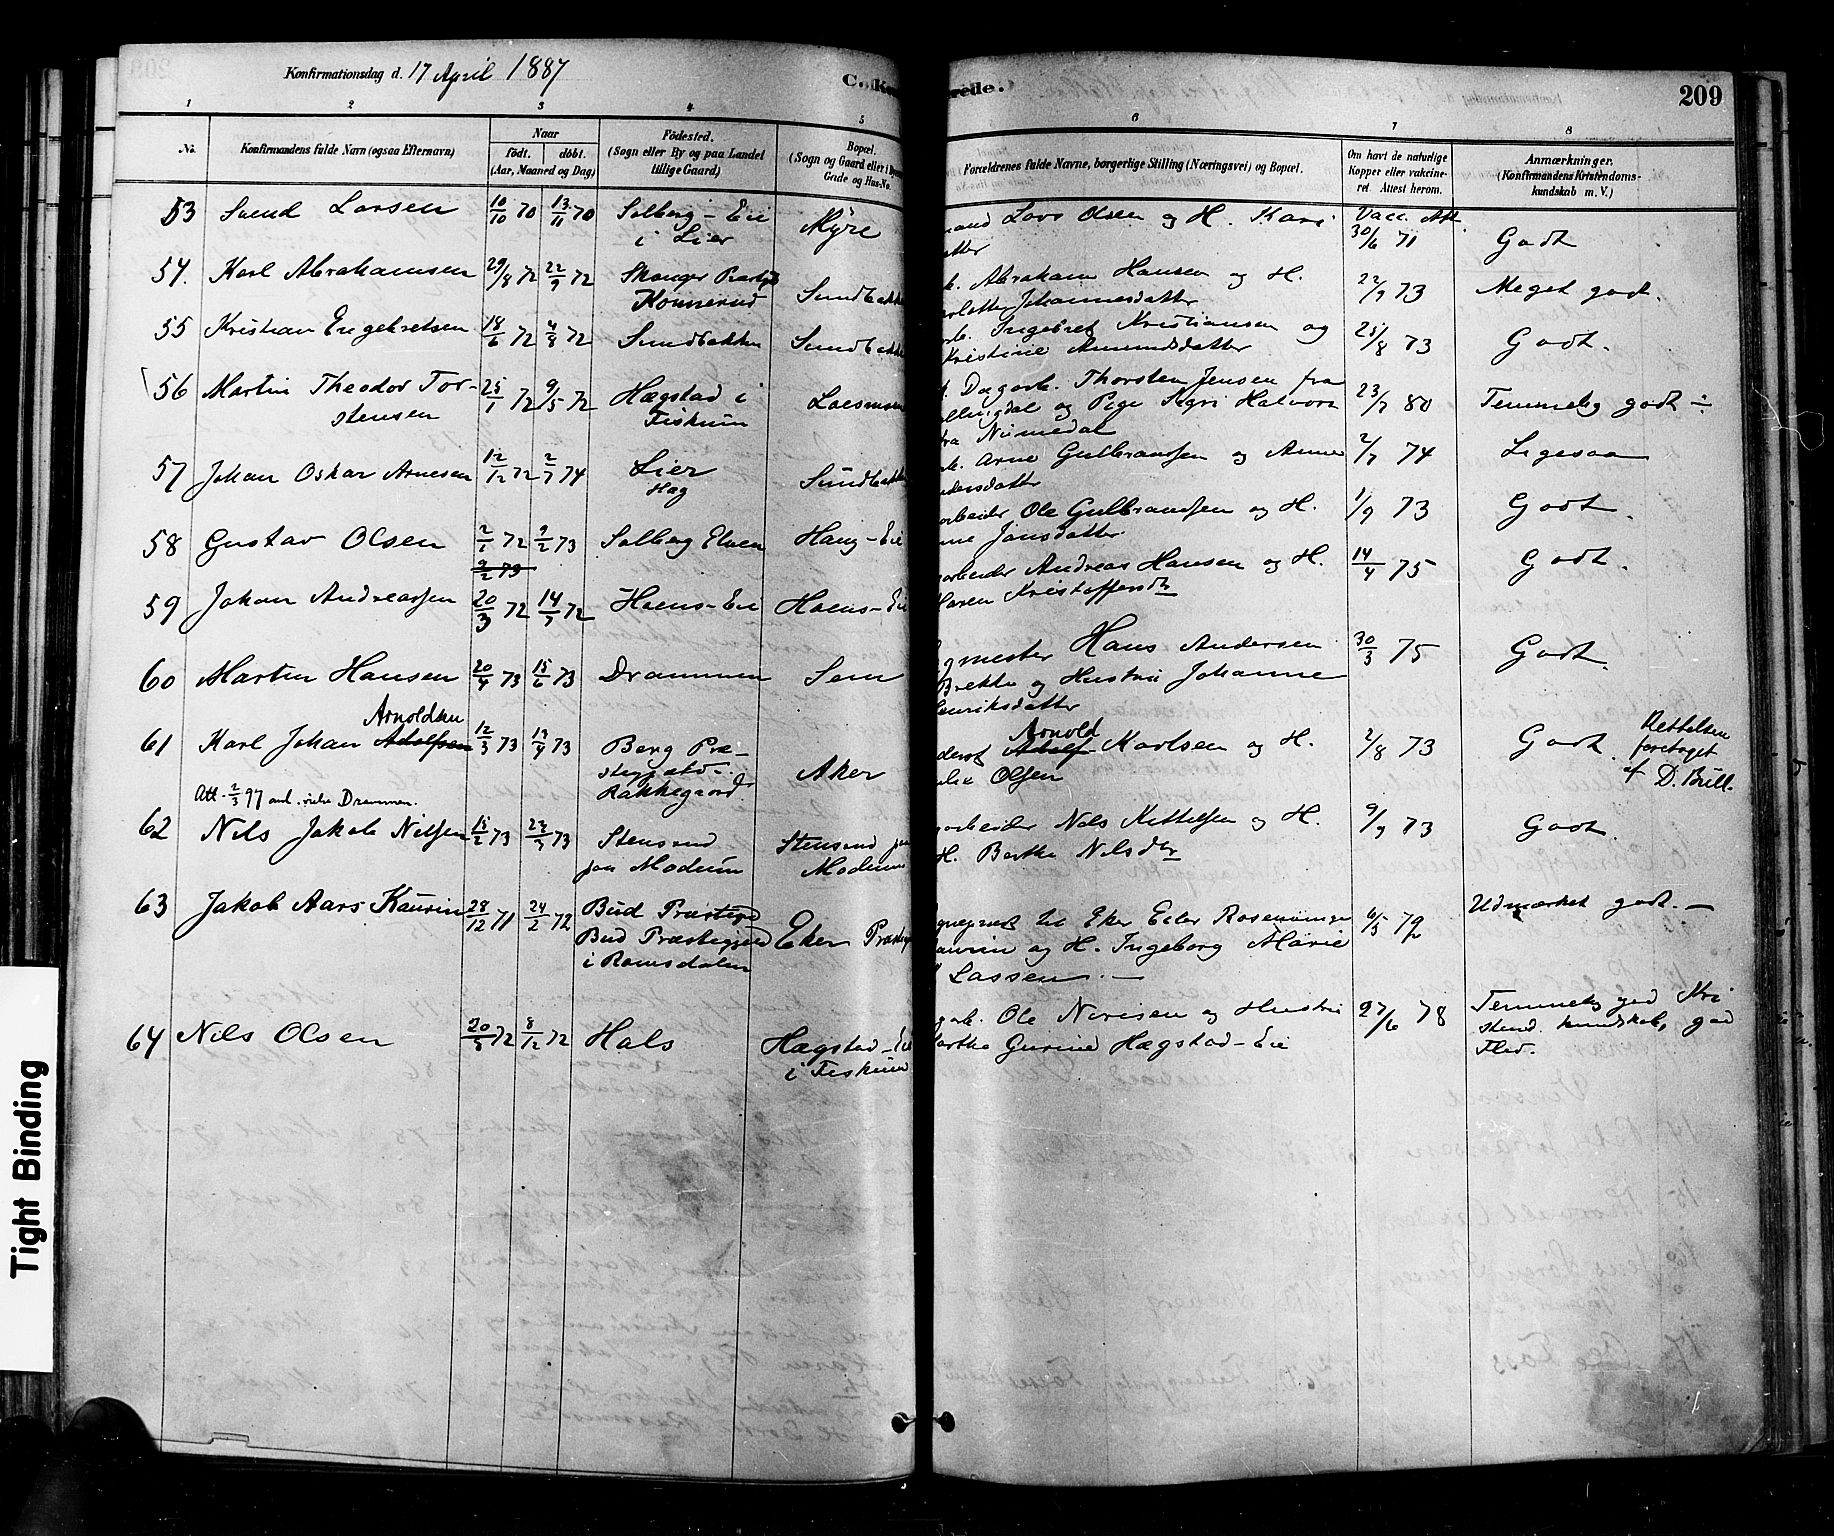 Konfirmationsdag d. 17 April 1887
C. Kon
rede.
209
1 2 3 4 5 6 7 8
No.
Konfirmandens fulde Navn (ogsaa Efternavn)
Naar
födt. döbt.
(Aar, Maaned og Dag)
Födested.
(Sogn eller By og paa Landet
tillige Gaard)
Bopæl.
(Sogn og Gaard eller i
Gade og Hus-No.
Forældrenes fulde Navne, borgerlige Stilling (Næringsvei) og Bopæl.
Om havt de naturlige
Kopper eller vakcine-
ret. Attest herom.
Anmærkninger.
(Konfirmandens Kristendoms-
kundskab m. V.)
53 Svend Larsen 10/10 70 13/11 70 Solberg-Eie Myre
i Lier
Lars Olsen og H. Kari
atter
Vacc. Att.
30/6 71 Godt
54. Karl Abrahamsen 29/8 72 22/9 72 Skoger Præstgj
Konnerud Sundbakke
Abraham Hansen og H.
arlotte Johannesdatter 22/9 73 Meget godt.
55 Kristian Engebretsen 18/6 72 4/8 72 Sundbakken Sundbakke
Ingebret Kristiansen og
Kristine Amundsdatter 25/8 73 Godt.
56 Martin Theodor Tor-
stensen 25/1 72 9/5 72 Hægstad i
Fiskum Loesmoen
Dagarb. Thorsten Jensen fra
llingdal og Pige Sigri Halvors
fra Numedal 23/7 80 Temmelig godt ÷
57 Johan Oskar Arnesen 12/12 72 2/7 74 Lier
Hæg Sundbakke
Arne Gulbransen og Anne
ndersdatter 2/7 74 Ligesaa
58 Gustav Olsen 2/1 72 9/2 73 Solberg Elven Haug-Eie
2/2 73
arbeider Ole Gulbransen og H.
ne Jansdatter 1/9 73 Godt.
59 Johan Andreassen 20/3 72 14/7 72 Hoens-Eie Hoens-Eie
arbeider Andreas Hansen og H.
Maren Kristoffersdtr 14/4 75 Godt.
60 Martin Hansen 20/4 73 15/6 73 Drammen Sem
gmester Hans Andersen
Brekke og Hustru Johanne
enriksdatter 30/3 75 Godt.
61 Karl Johan Adolfsen 12/3 73 13/4 73 Berg Præ-
Arnoldsen
stegjæld
Rakkegaard Aker
Att. 2/3 97 Drammen.
Arnold
Adolf Karlsen og H.
Olsen 2/8 73 Godt.
Rettelsen
foretaget
af D. Brill.
62 Nils Jakob Nilsen 15/2 73 23/3 73 Stensrud
paa Modum Stensrud paa
Modum
arbeider Nils Kittelsen og H.
H. Berthe Nilsdtr 9/9 73 Godt.
63 Jakob Aars Kaurin 28/12 71 24/2 72 Bud Præstegj
Bud Præstegjeld
i Romsdalen Eker Præstg
gnepræst til Eker Eiler Rosenvinge
aurin og H. Ingeborg Marie
Lassen. — 6/5 72 Udmærket godt. —
64 Nils Olsen 20/3 72 8/12 72 Hals Hægstad-Eie
i Fiskum
garb. Ole Nirisen og Hustru
Marthe Gurine Hægstad-Eie 27/6 78 Temmelig god Kri
stend. kundskab, god
Flid.
Tight Binding